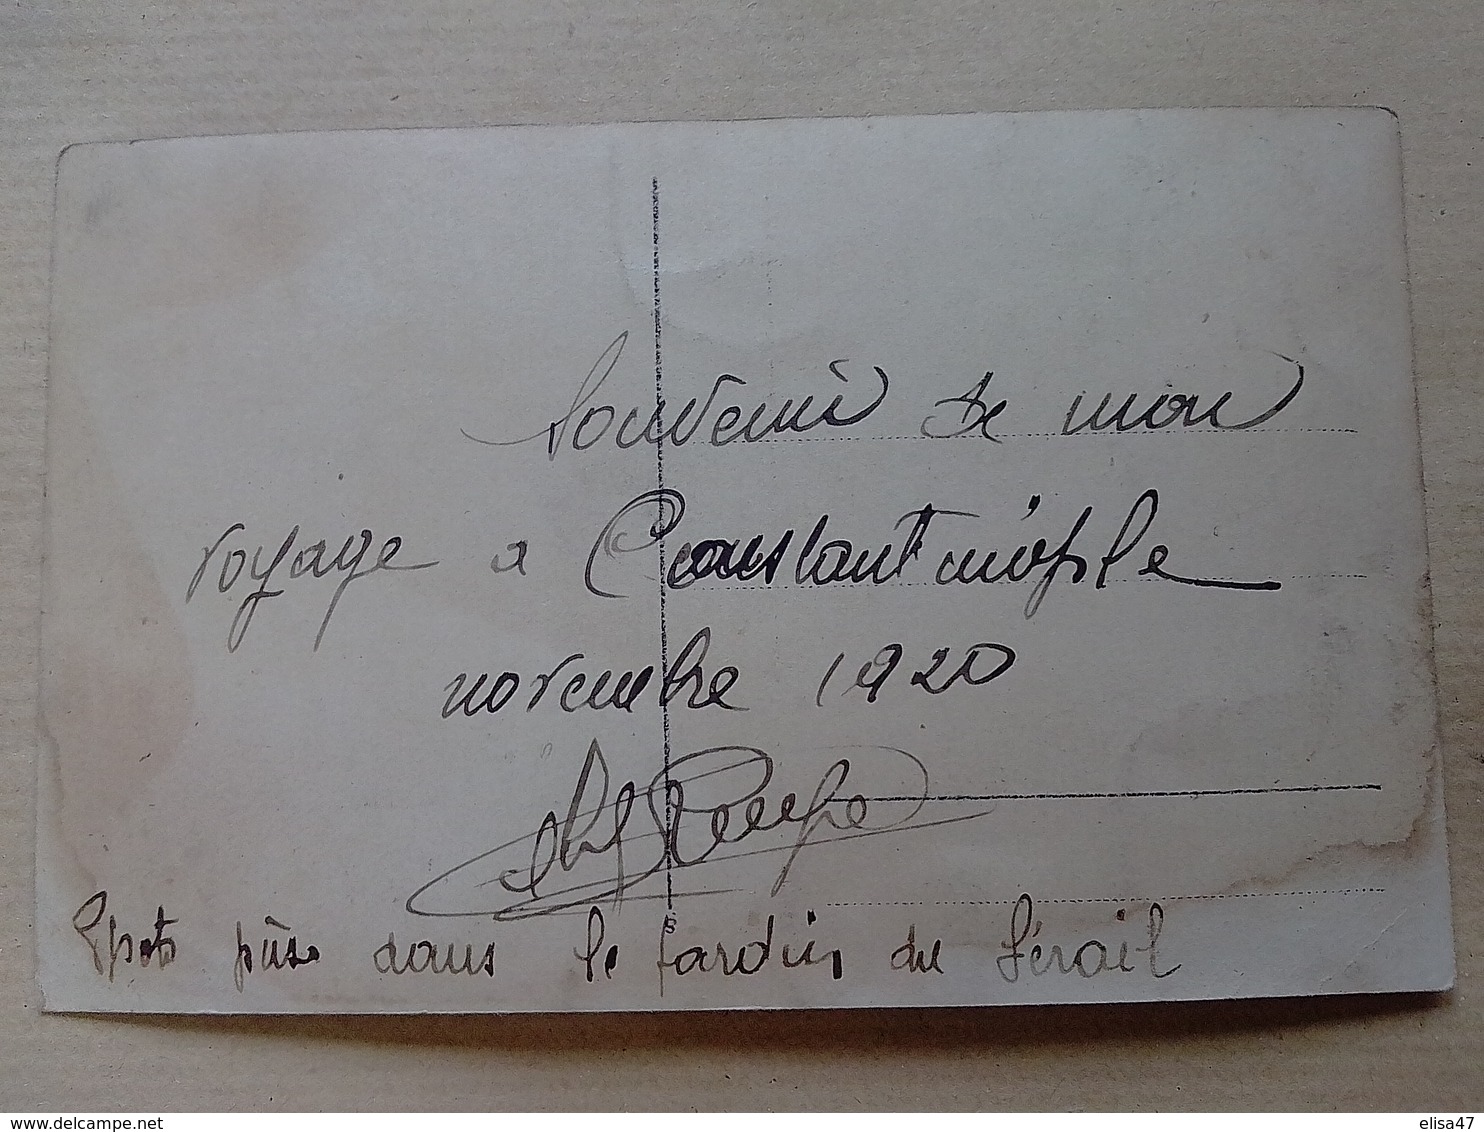 Souvenir de mon
voyage a Constantinople
novembre 1920
prise dans le jardin du Sérail
delcampe.net
elisa47